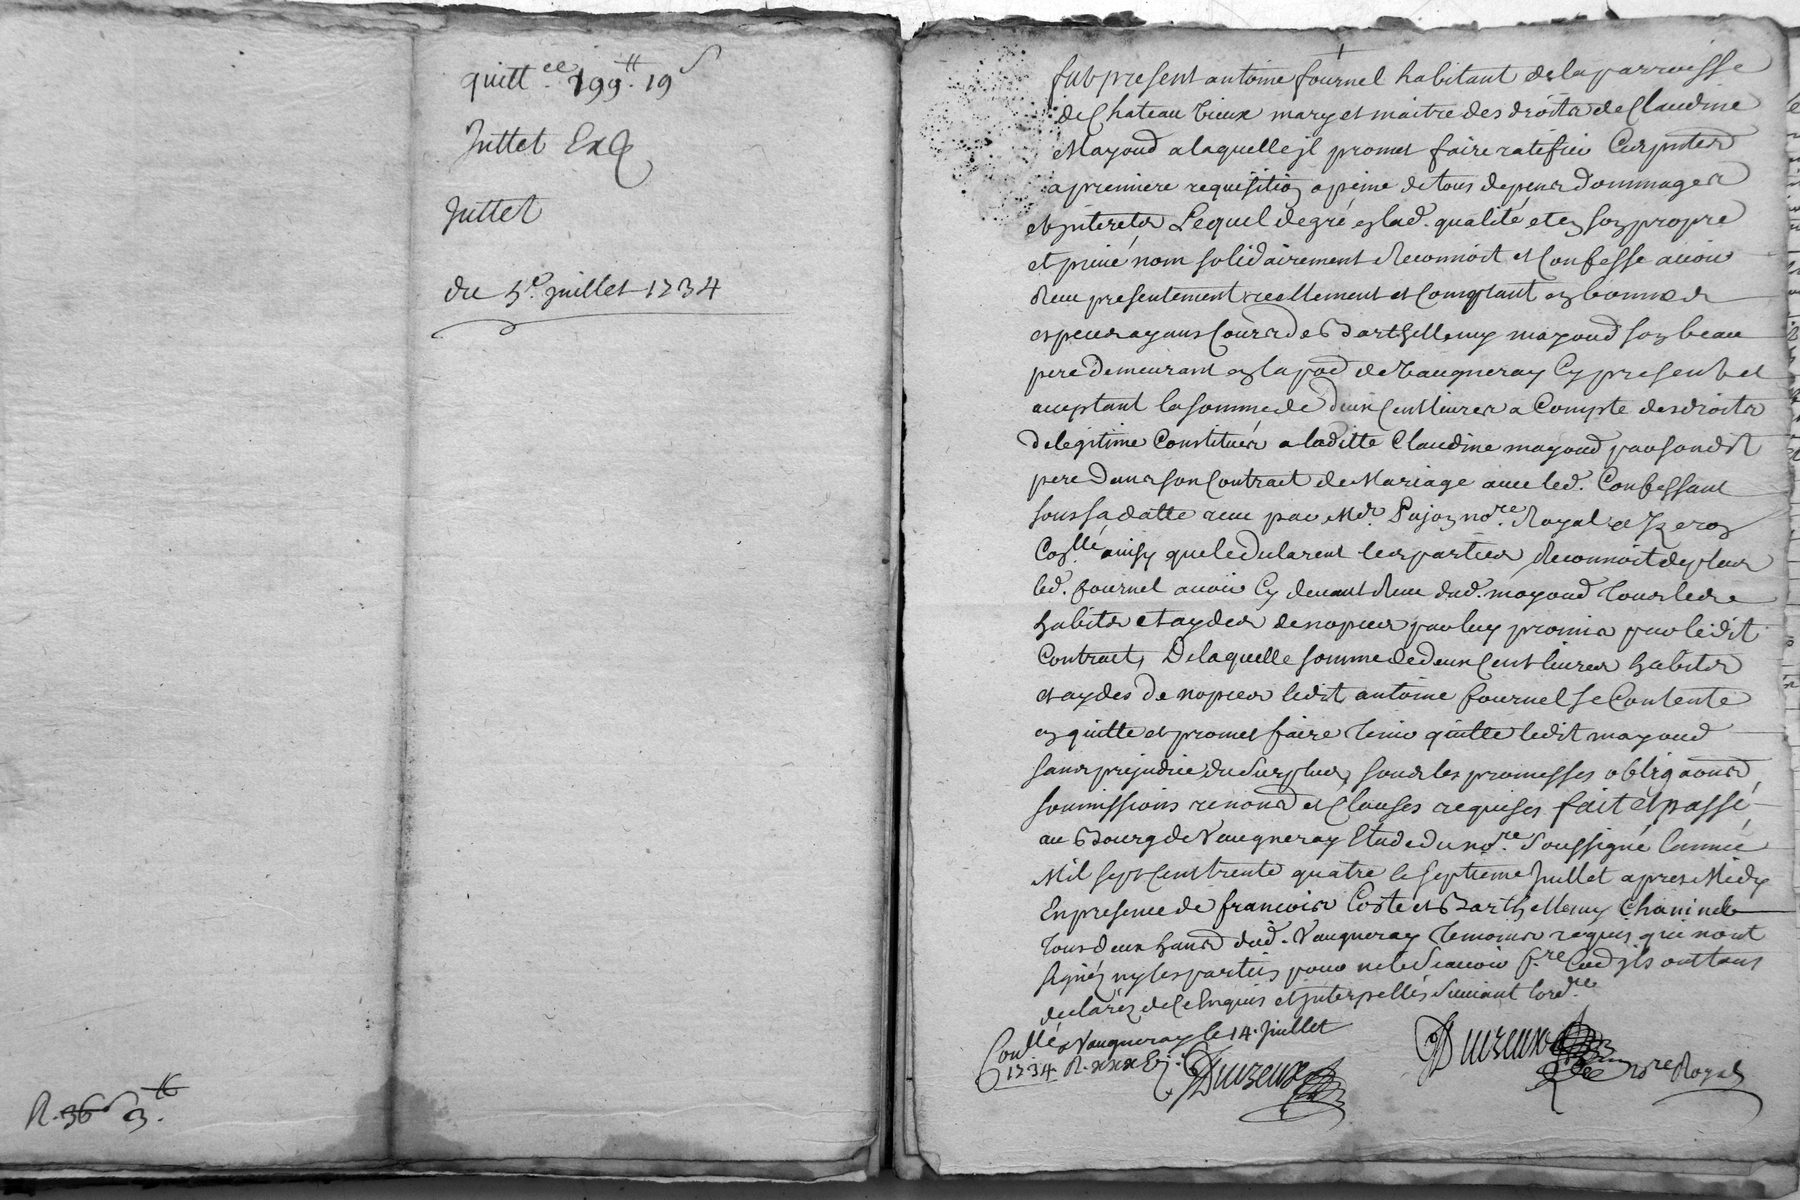 quitt.ce 199.tt 19 s
Juttet Ex
Juttet
du 5e. juillet 1734
R. 36 s 3.tt
fut present antoine fournel habitant de la parroisse
de Chateau Vieux mary et maitre des droits de Claudine
Mayoud a laquelle jl promet faire ratifier Ces pntes
a premiere requisition a peine de tous depens dommages
et jnterets Lequel de gré en lad. qualité et en son propre
et privé nom solidairement Reconnoit et Confesse avoir
Receu presentement reellement et Comptant en bonnes
especes ayans Cours de Barthellemy mayoud son beau
pere demeurant en la pod de Vaugneray Cy present et
acceptant la somme de deux Cent livres a Compte des droits
de legitime Constitués a laditte Claudine mayoud par sondit
pere dans son Contract de Mariage avec led. Confessant
sous sa datte receu par Me. Pujon nore. Royal a
ainsy que le declarent les parties Reconnoit de plus
led. fournel avoir Cy devant Receu dud. mayoud Tous les
habits et aydes de nopces par luy promis par ledit
Contract, De laquelle somme de deux Cent livres habits
et aydes de nopces ledit antoine fournel se Contente
en quitte et promet faire Tenir quitte ledit mayoud
sans prejudice du surplus, sous les promesses obligaons
soumissions renons et Clauses requises fait et passé
au Bourg de Vaugneray Etude du nore. soussigné Lannée
Mil sept Cent trente quatre le septieme Juillet apres Midy
En presence de francois Coste et Barthellemy Chanin
Tous deux hans dud. Vaugneray Temoins requis qui nont
signés ny les parties pour ne le scavoir f.re Ce jls ont tous
declarés de Ce Enquis et jnterpellés suivant lord.ce
Con.llé a Vaugneray le 14. Juillet
1734 R. xxx
Duvzeux
Duvzeux
nore Royal